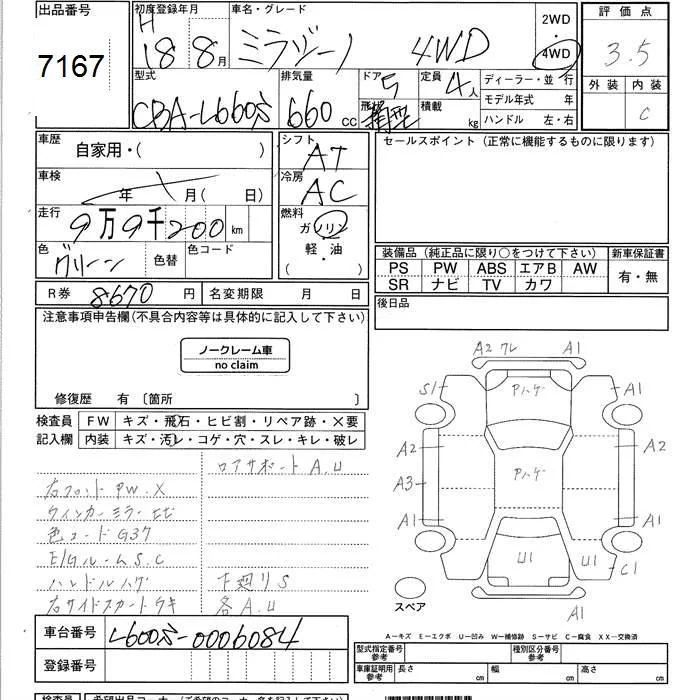 出品番号 初度登録年月 車名・グレード 2WD 評価点
7167 H 18 8月 ミラジーノ 4WD 4WD 3.5
型式 排気量 ドア 定員 ディーラー・並行 外装 内装
CBA-L660S 660cc 5 形状 箱型 4人 積載 kg モデル年式 年 C
ハンドル 左・右
車歴 自家用・( ) シフト AT セールスポイント(正常に機能するものに限ります)
車検 年 月( 日) 冷房 AC
走行 9万9千200km 燃料 ガソリン
色 グリーン 色替 色コード 軽・油 ( )
装備品(純正品に限り○をつけて下さい) 新車保証書
PS PW ABS エアB AW 有・無
SR ナビ TV カワ
R券 8670円 名変期限 月 日 後日品
注意事項申告欄(不具合内容等は具体的に記入して下さい)
ノークレーム車
no claim
修復歴 有〔箇所 〕
検査員 FW キズ・飛石・ヒビ割・リペア跡・×要
記入欄 内装 キズ・汚レ・コゲ・穴・スレ・キレ・破レ
ロアサポート A.U
右フロント PW.X
ウィンカーミラーヒビ
色コード G37
E/Gルーム S.C
ハンドルハゲ 下廻り S
右サイドスカートウキ 各A.U
A2 ワレ A1
S1 Pハゲ A1
A2 A2
A3 Pハゲ
A1 A1
U1 U1 C1
スペア A1
A-キズ E-エクボ U-凹み W-補修跡 S-サビ C-腐食 XX-交換済
車台番号 L660S-0006084
登録番号
型式指定番号 参考 種別区分番号 参考
車庫証明用 参考 長さ cm 幅 cm 高さ cm
検査員 希望出品コーナー